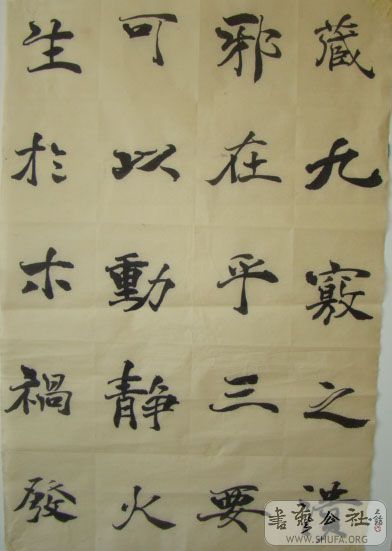 藏九竅之
邪在乎三要
可以動靜火
生於木禍發
書藝公社
WWW.SHUFA.ORG